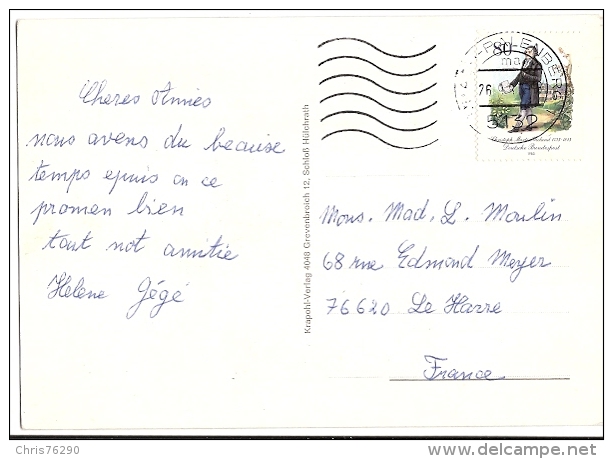 Cheres Amies
nous avens du beauise
temps epuis on ce
promen bien
tout not amitie
Helene Gégé
Krapohl-Verlag 4048 Grevenbroich 12, Schloß Hülchrath
80
5132
Deutsche Bundespost
Mons. Mad. L. Moulin
68 rue Edmond Meyer
76620 Le Havre
France
Chris76290
delcampe.net